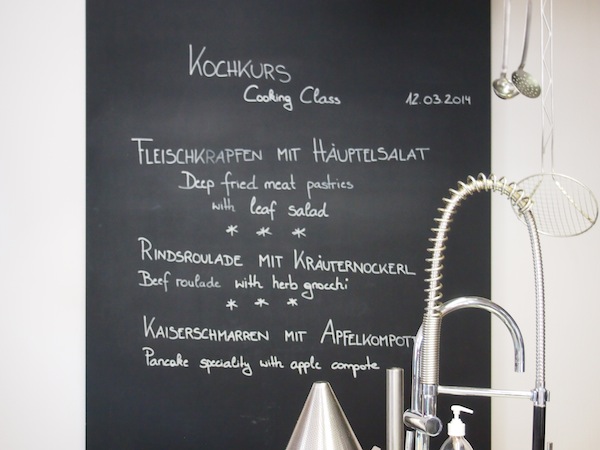 KOCHKURS
Cooking Class
12.03.2014
FLEISCHKRAPFEN MIT HÄUPTELSALAT
Deep fried meat pastries
with leaf salad
* * *
RINDSROULADE MIT KRÄUTERNOCKERL
Beef roulade with herb gnocchi
* * *
KAISERSCHMARREN MIT APFELKOMPOTT
Pancake speciality with apple compote